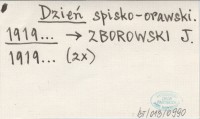 Dzień spisko-orawski.
1919... → ZBOROWSKI J.
1919... (2x)